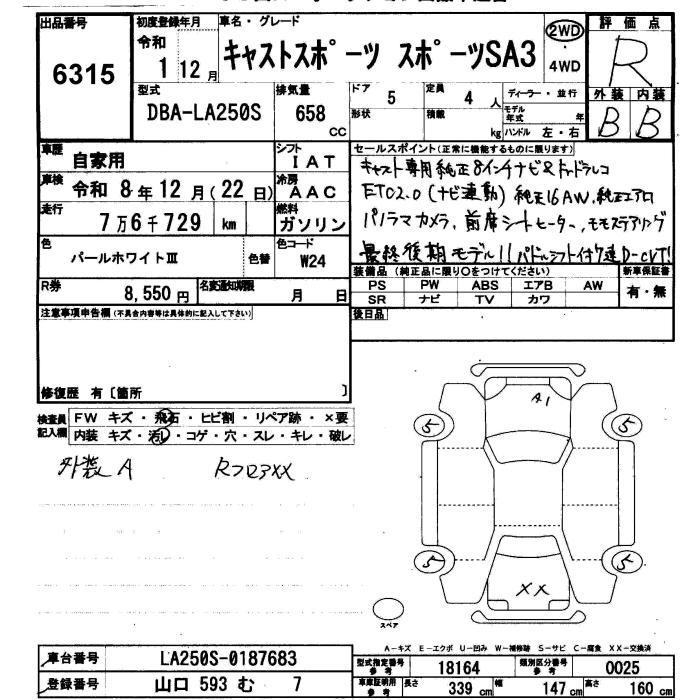 出品番号 初度登録年月 車名・グレード 評価点
6315 令和 1 12月 キャストスポーツ スポーツSA3 2WD ・ 4WD R
型式 排気量 ドア 5 定員 4 人 ディーラー・並行 外装 内装
DBA-LA250S 658 CC 形状 積載 kg モデル年式 年 ハンドル 左・右 B B
車歴 自家用 シフト IAT セールスポイント(正常に機能するものに限ります)
車検 令和 8年 12月 (22日) 冷房 AAC キャスト専用純正8インチナビ&ドラレコ
走行 7万6千729 km 燃料 ガソリン ETC2.0(ナビ連動) 純正16AW、純正エアロ
色 パールホワイトⅢ 色替 色コード W24 パノラマカメラ、前席シートヒーター、モモステアリング
最終後期モデル!! パドルシフト付7速D-CVT!
R券 8,550円 名変通知期限 月 日 装備品(純正品に限り○をつけてください) 新車保証書
PS PW ABS エアB AW 有・無
SR ナビ TV カワ
注意事項申告欄(不具合内容等は具体的に記入して下さい) 後日品
修復歴 有〔箇所 〕
検査員記入欄 FW キズ・飛石・ヒビ割・リペア跡・×要
内装 キズ・汚れ・コゲ・穴・スレ・キレ・破レ
外装A RフロアXX
A1
5 5
5 5
XX
スペア
A-キズ E-エクボ U-凹み W-補修跡 S-サビ C-腐食 XX-交換済
車台番号 LA250S-0187683 型式指定番号 参考 18164 類別区分番号 参考 0025
登録番号 山口 593 む 7 車庫証明用 参考 長さ 339 cm 幅 147 cm 高さ 160 cm